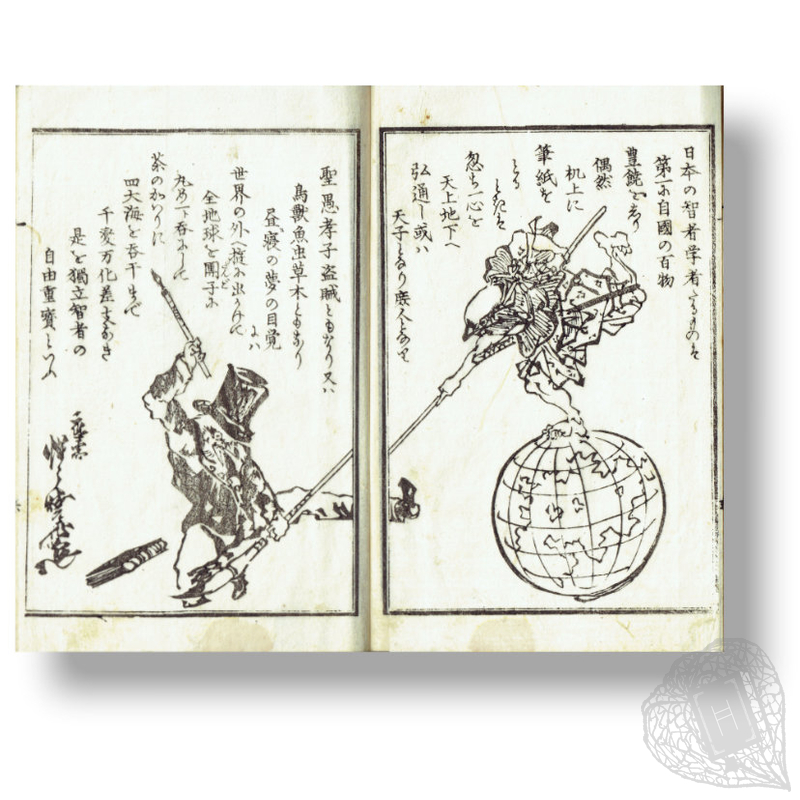 日本の智者学者たるものは
第一に自國の百物
豊饒にあり
偶然
机上に
筆紙を
とる
ときは
忽ち一心を
天上地下へ
弘通し或ハ
天子となり となつて
聖愚孝子盗賊ともなり又ハ
鳥獣魚虫草木ともなり
昼寝の夢の目覚にハ
世界の外へ 出かけて
全地球を團子に
丸め一呑にして
茶のかわりに
四大海を呑干すまで
千変万化差支なき
是を獨立智者の
自由重寳といふ
應需
惺々暁斎
H